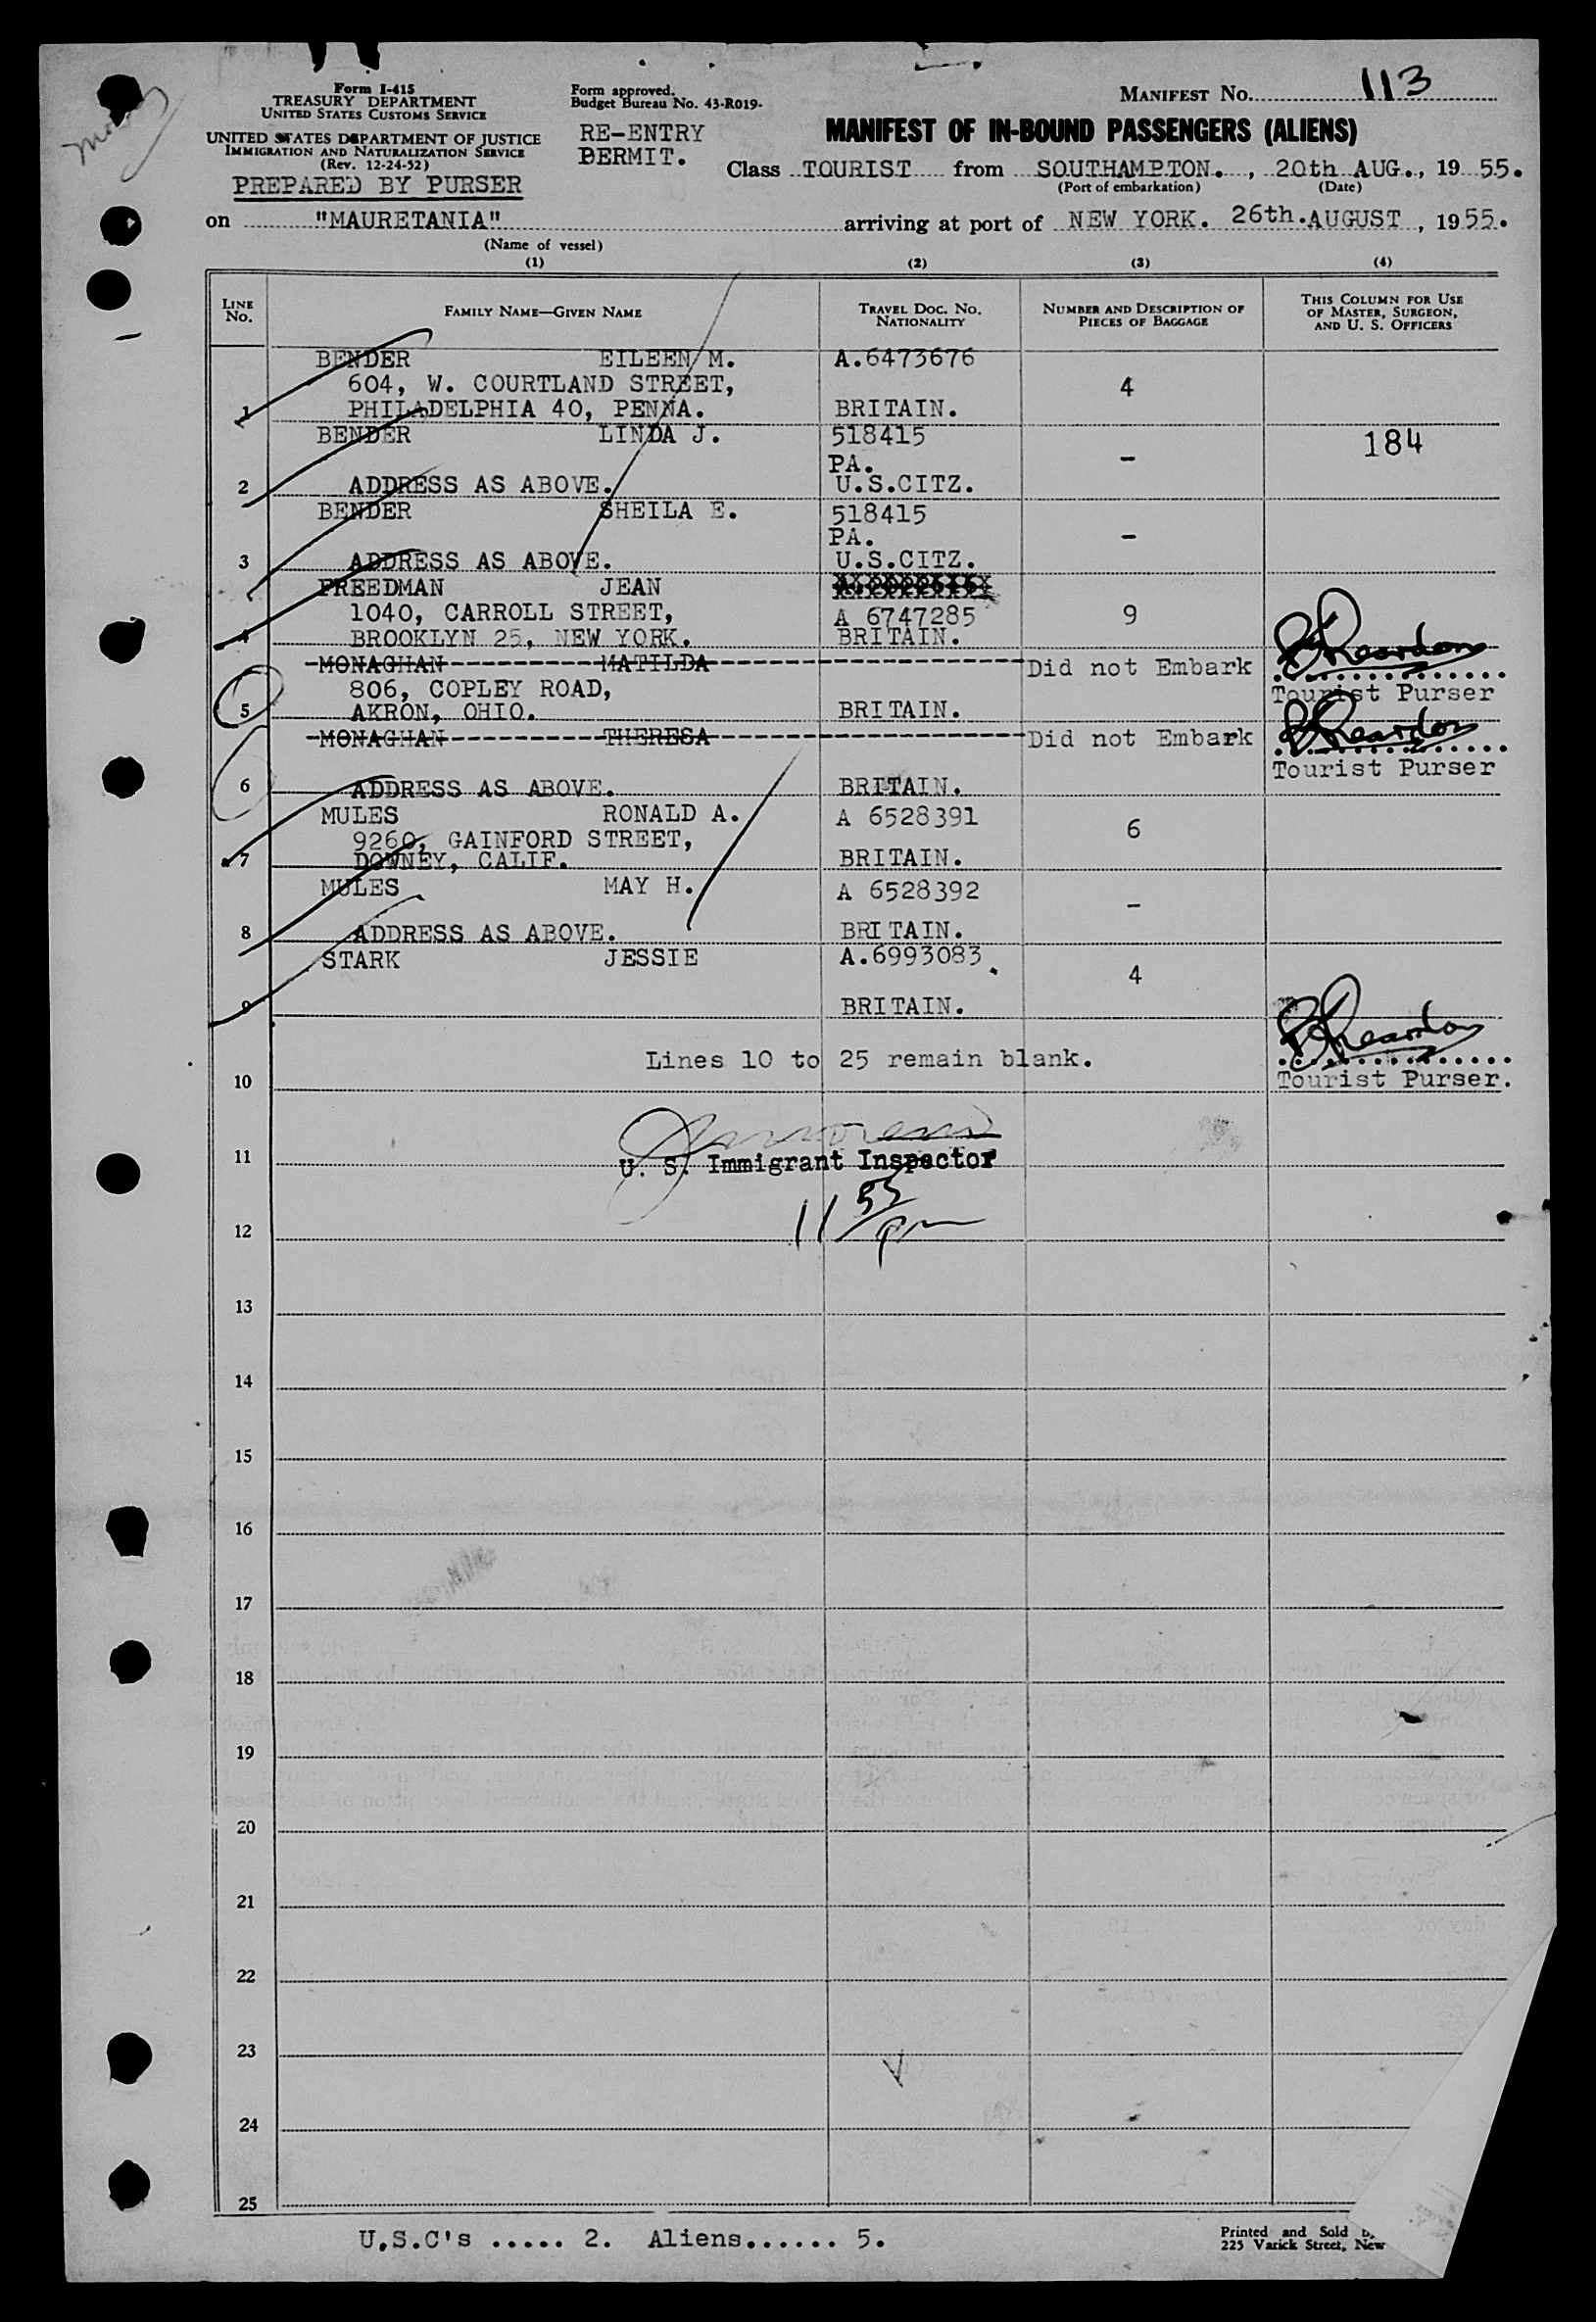 Form I-415
TREASURY DEPARTMENT
UNITED STATES CUSTOMS SERVICE
UNITED STATES DEPARTMENT OF JUSTICE
IMMIGRATION AND NATURALIZATION SERVICE
(Rev. 12-24-52)
PREPARED BY PURSER
Form approved.
Budget Bureau No. 43-R019.
RE-ENTRY
PERMIT.
MANIFEST No. 113
MANIFEST OF IN-BOUND PASSENGERS (ALIENS)
Class TOURIST from SOUTHAMPTON. , 20th AUG., 19 55.
(Port of embarkation) (Date)
on "MAURETANIA" arriving at port of NEW YORK. 26th.AUGUST , 19 55.
(Name of vessel)
(1) (2) (3) (4)
LINE No. FAMILY NAME—GIVEN NAME TRAVEL DOC. No. NATIONALITY NUMBER AND DESCRIPTION OF PIECES OF BAGGAGE THIS COLUMN FOR USE OF MASTER, SURGEON, AND U. S. OFFICERS
BENDER EILEEN M. A.6473676
604, W. COURTLAND STREET, 4
1 PHILADELPHIA 40, PENNA. BRITAIN.
BENDER LINDA J. 518415 184
PA. -
2 ADDRESS AS ABOVE. U.S.CITZ.
BENDER SHEILA E. 518415
PA. -
3 ADDRESS AS ABOVE. U.S.CITZ.
FREEDMAN JEAN
1040, CARROLL STREET, A 6747285 9
4 BROOKLYN 25, NEW YORK. BRITAIN.
MONAGHAN MATILDA Did not Embark
806, COPLEY ROAD, Tourist Purser
5 AKRON, OHIO. BRITAIN.
MONAGHAN THERESA Did not Embark
Tourist Purser
6 ADDRESS AS ABOVE. BRITAIN.
MULES RONALD A. A 6528391
9260, GAINFORD STREET, 6
7 DOWNEY, CALIF. BRITAIN.
MULES MAY H. A 6528392
-
8 ADDRESS AS ABOVE. BRITAIN.
STARK JESSIE A.6993083
4
9 BRITAIN.
Lines 10 to 25 remain blank.
10 Tourist Purser.
11 U. S. Immigrant Inspector
11 55/pm
12
13
14
15
16
17
18
19
20
21
22
23
24
25
U.S.C's ..... 2. Aliens...... 5.
Printed and Sold
225 Varick Street, New